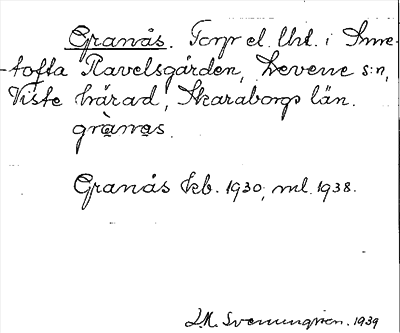 Granås. Torp el. lht. i Sme-
-tofta Ravelsgården, Levene s:n,
Viste härad, Skaraborgs län.
grànas.
Granås kb. 1930, ml. 1938.
J.M. Svenningsson. 1939